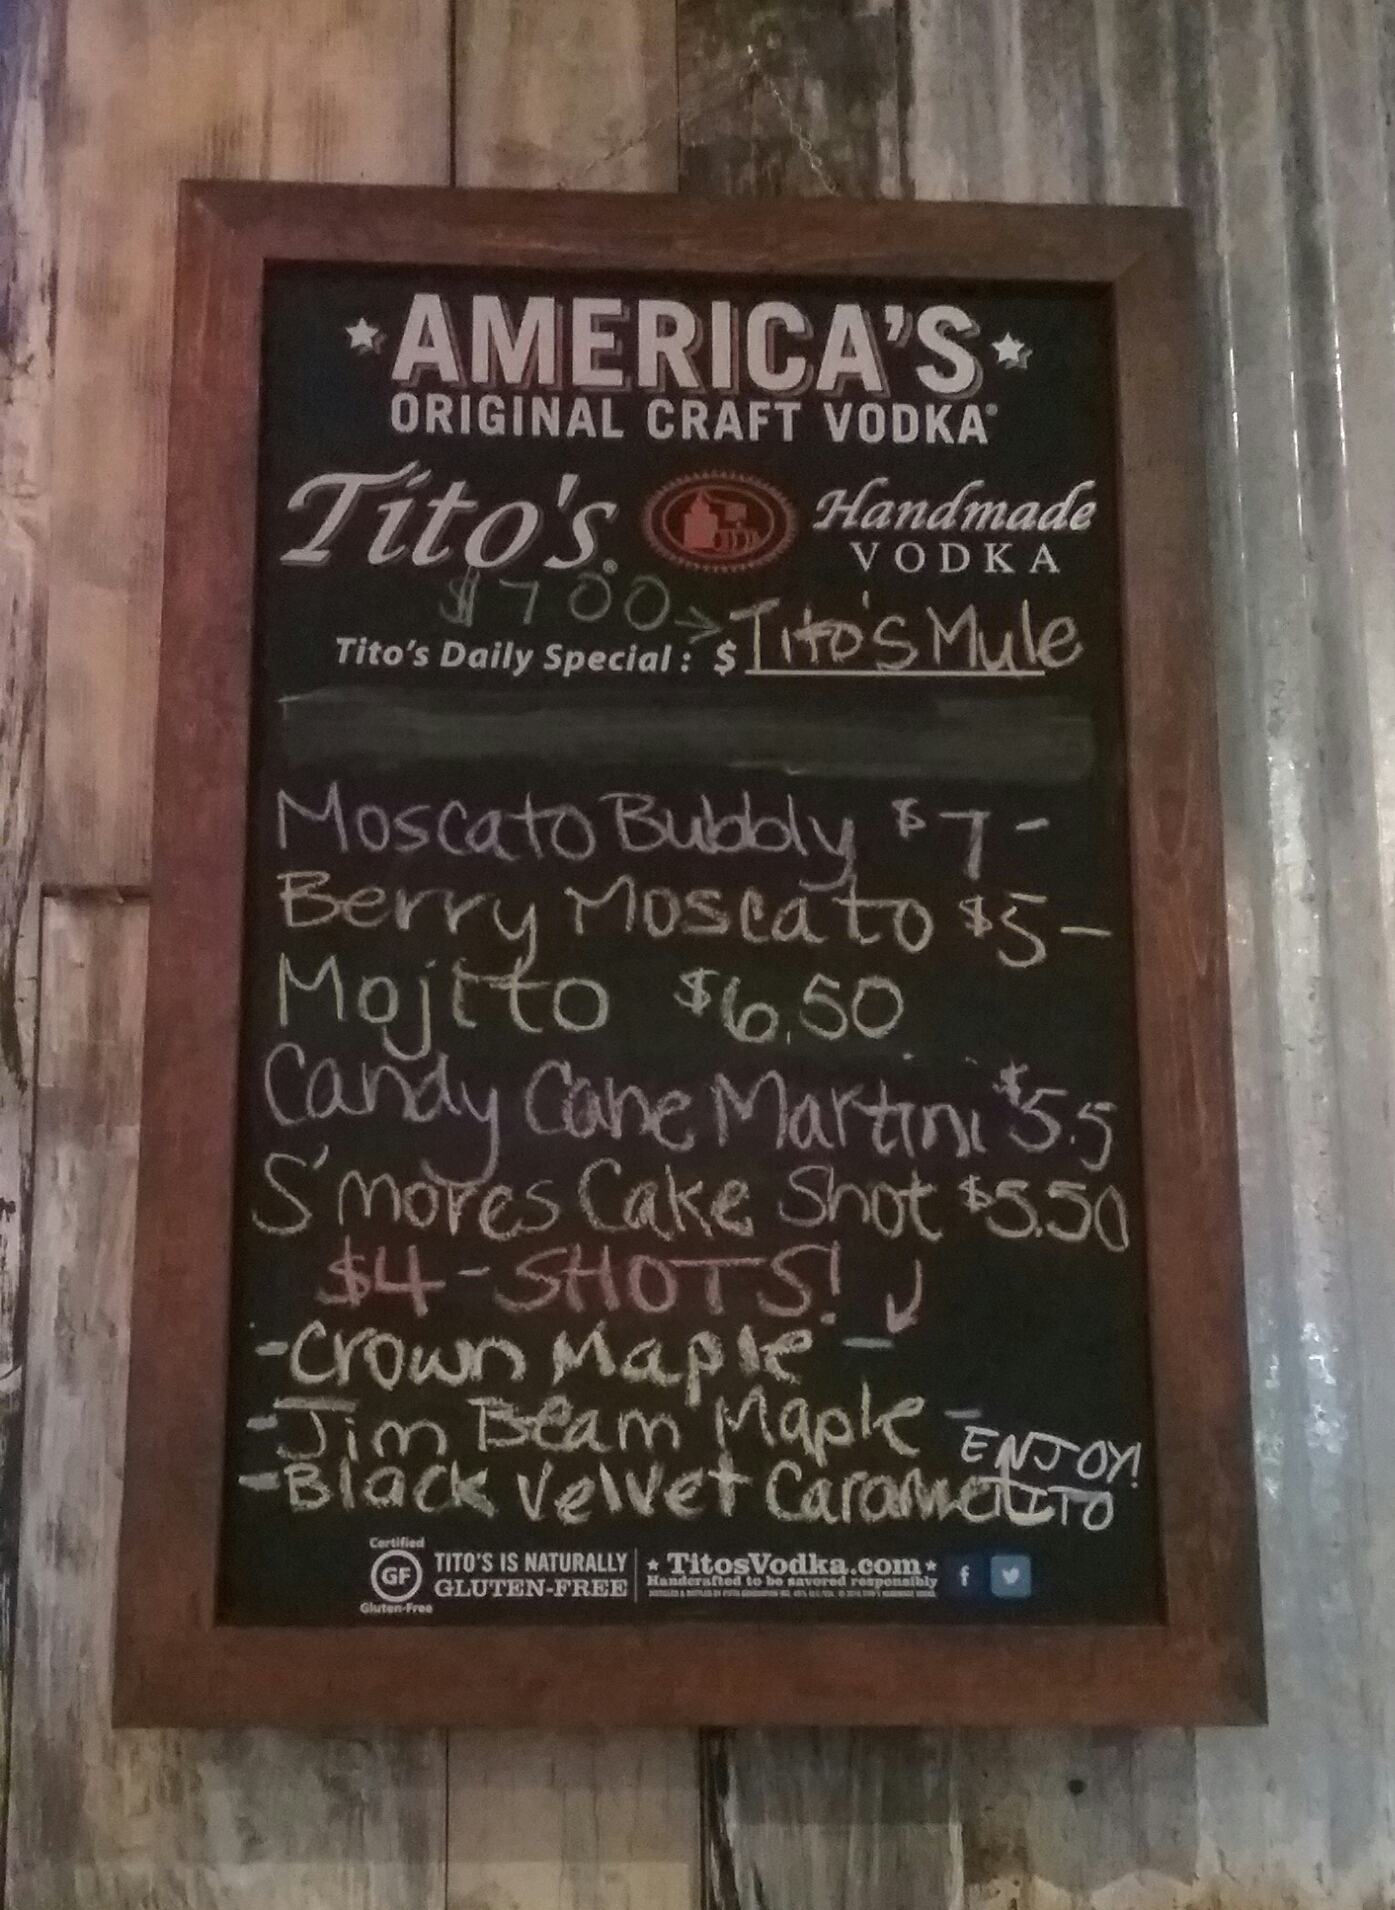 AMERICA'S
ORIGINAL CRAFT VODKA®
Tito's® Handmade
VODKA
$700→
Tito's Daily Special: $ Tito's Mule
Moscato Bubbly $7-
Berry Moscato $5-
Mojito $6.50
Candy Cane Martini $5.5
S'mores Cake Shot $5.50
$4-SHOTS!
-Crown Maple-
-Jim Beam Maple-
ENJOY!
-Black Velvet Caramel
Certified
GF
Gluten-Free
TITO'S IS NATURALLY
GLUTEN-FREE
TitosVodka.com
Handcrafted to be savored responsibly
f